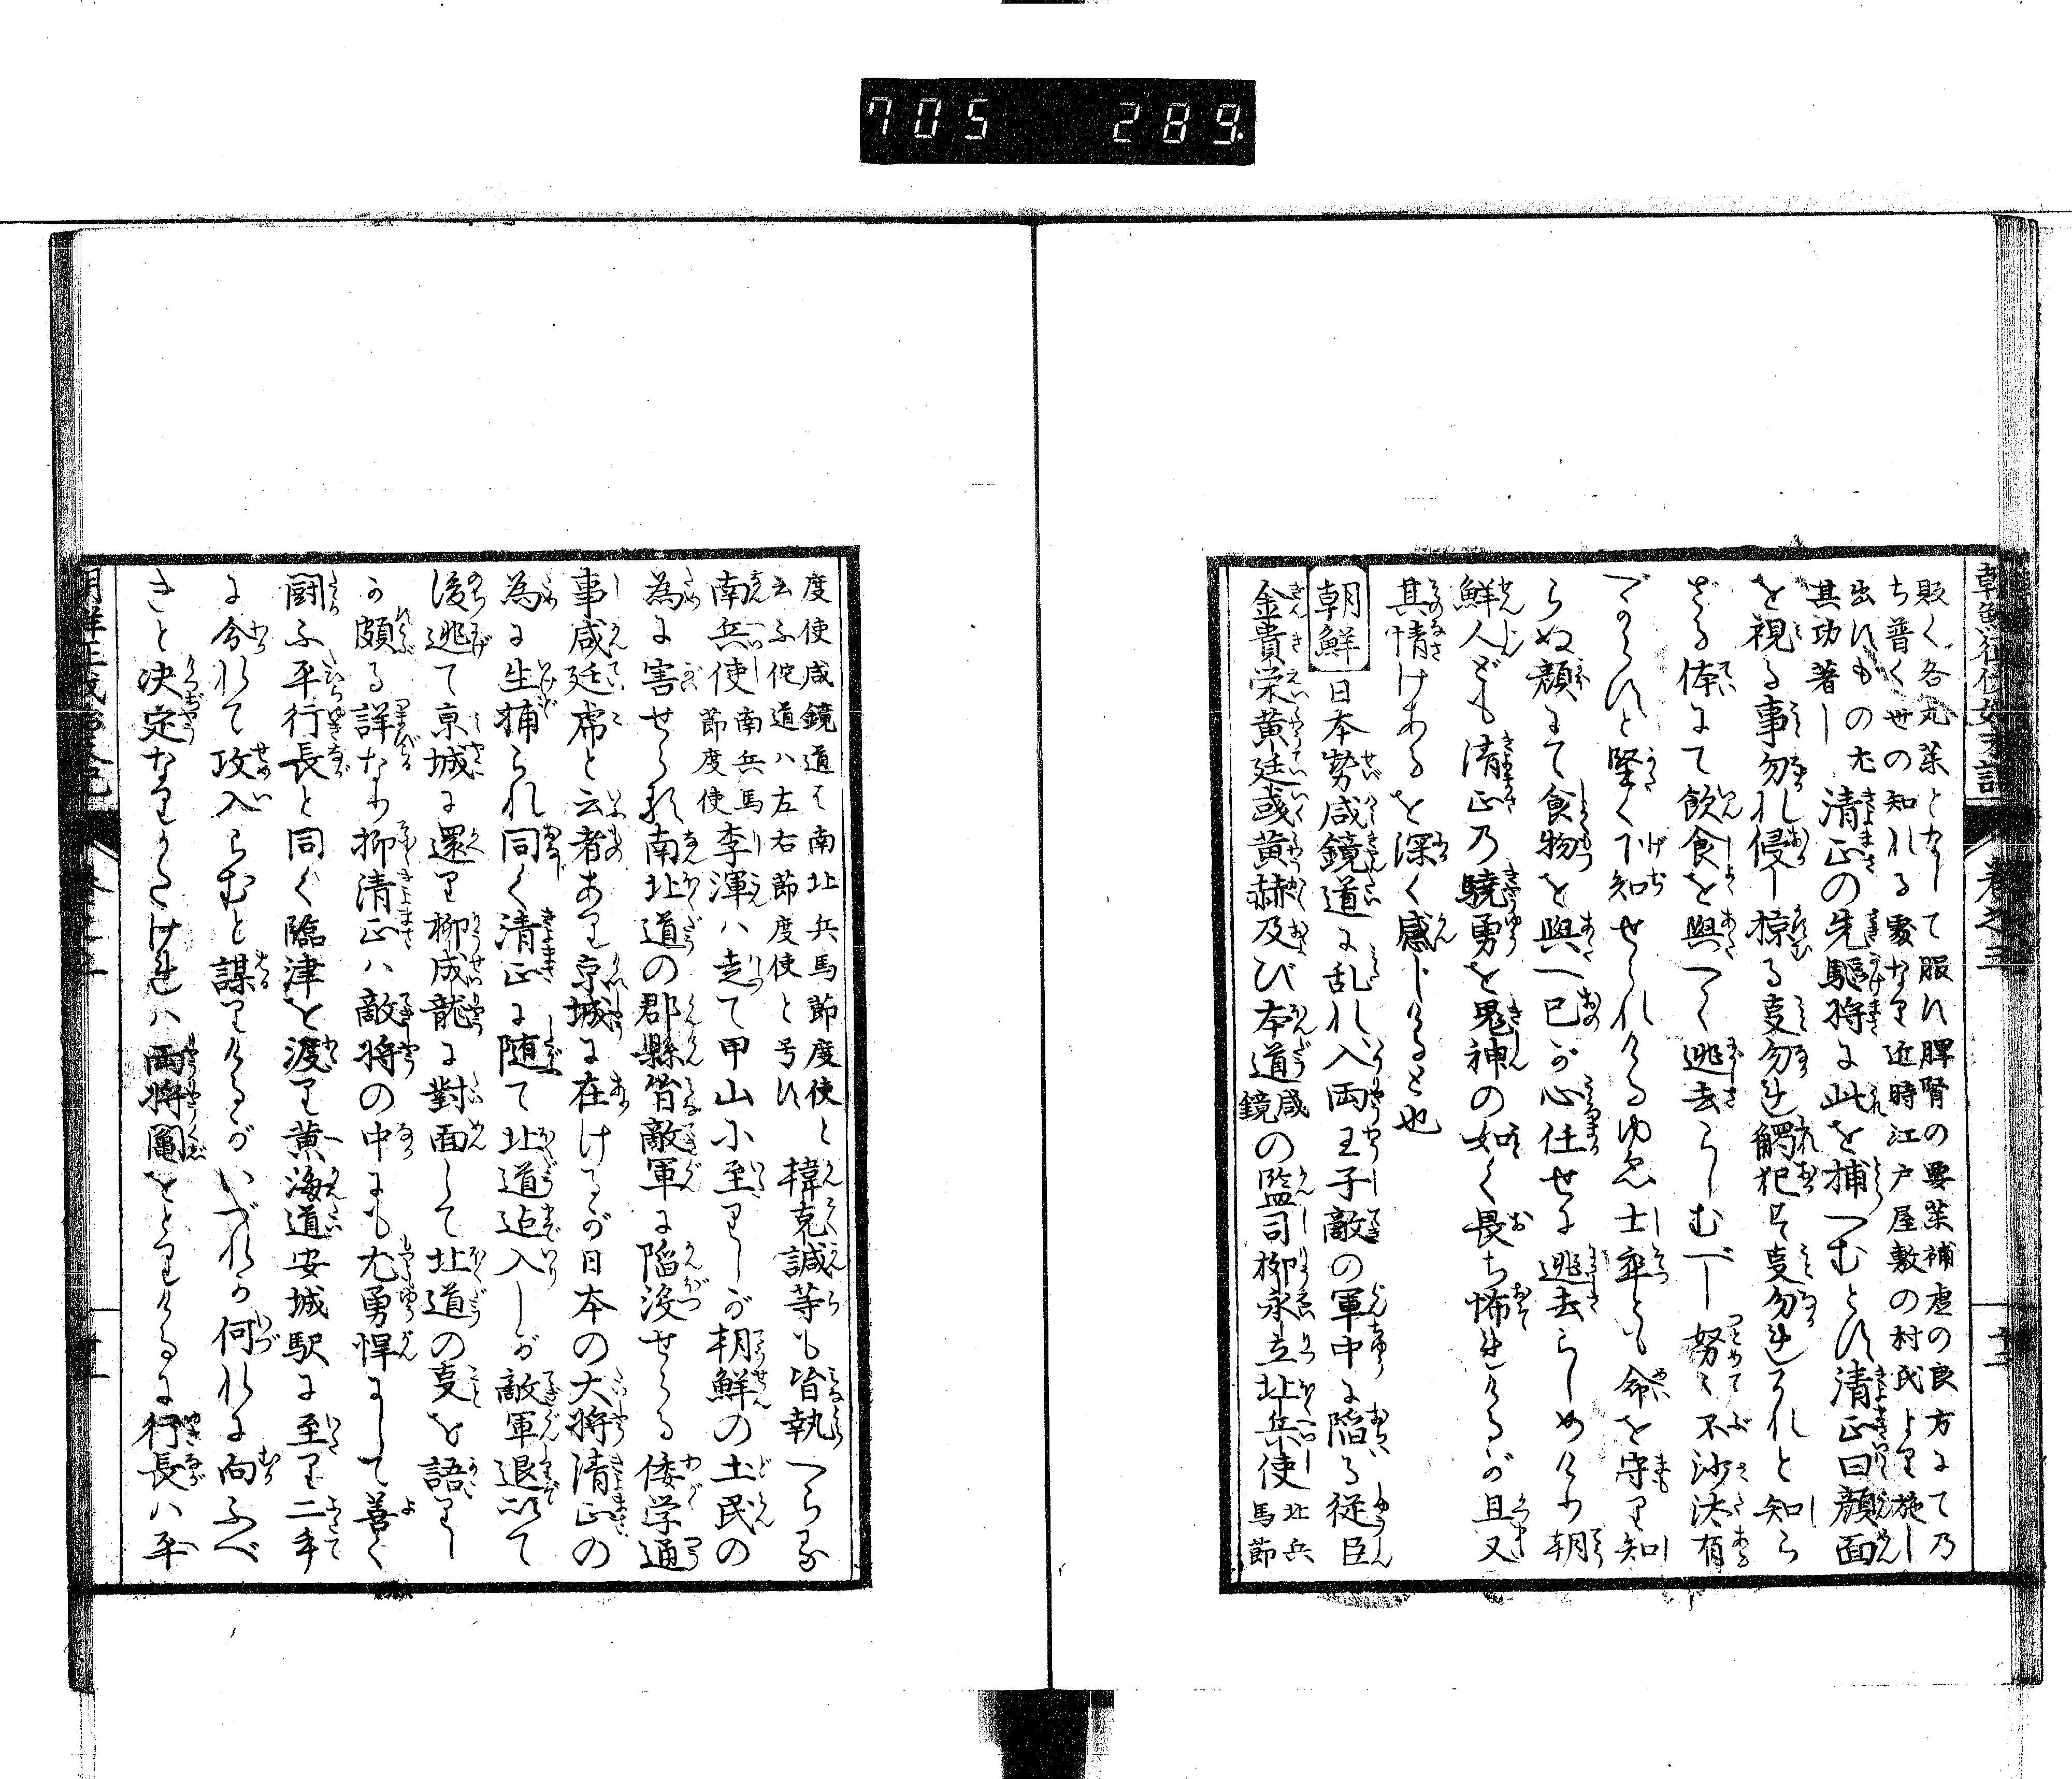 705 289.
敗く各丸薬となして服に脾腎の要薬補虚の良方にて乃
ち普くせの知れる處なり近時江戸屋敷の村民より施し
出にもの尤
其功著し
清正の先驅將に此を捕へむとに清正曰顔面
を視る事勿れ侵し掠る事勿連觸犯す事勿連かれと知ら
ざる体にて飲食を與へて逃去らしむべし努々不沙汰有
べからにと堅く下知せられけるゆゑ士卒とも命を守り知
らぬ顔にて食物を與へ己が心任せに逃去らしめけり朝
鮮人ども清正乃驍勇を鬼神の如く畏ち怖連けるが且又
其情けあるを深く感じけると也
朝鮮 日本勢咸鏡道に乱れ入両王子敵の軍中に陥る従臣
金貴榮黄廷彧黄赫及び本道咸鏡の監司柳永立北兵使北兵馬節
度使咸鏡道は南北兵馬節度使と
云ふ他道ハ左右節度使と号に
韓克諴等も皆執へらる
南兵使南兵馬節度使李渾ハ走て甲山小至りしが朝鮮の土民の
為に害せらる南北道の郡縣皆敵軍に陥没せらる倭学通
事咸廷席と云者あり京城に在けるが日本の大将清正の
為に生捕られ同く清正に随て北道迠入しが敵軍退いて
後逃て京城に還り柳成龍に對面して北道の事を語りし
か頗る詳なり抑清正ハ敵将の中にも尤勇悍にして善く
闘ふ平行長と同く臨津を渡り黄海道安城駅に至り二手
に分れて攻入らむと謀りけるがいづれか何れに向ふべ
きと決定なりかたけ連ハ両将鬮をとりけるに行長ハ平